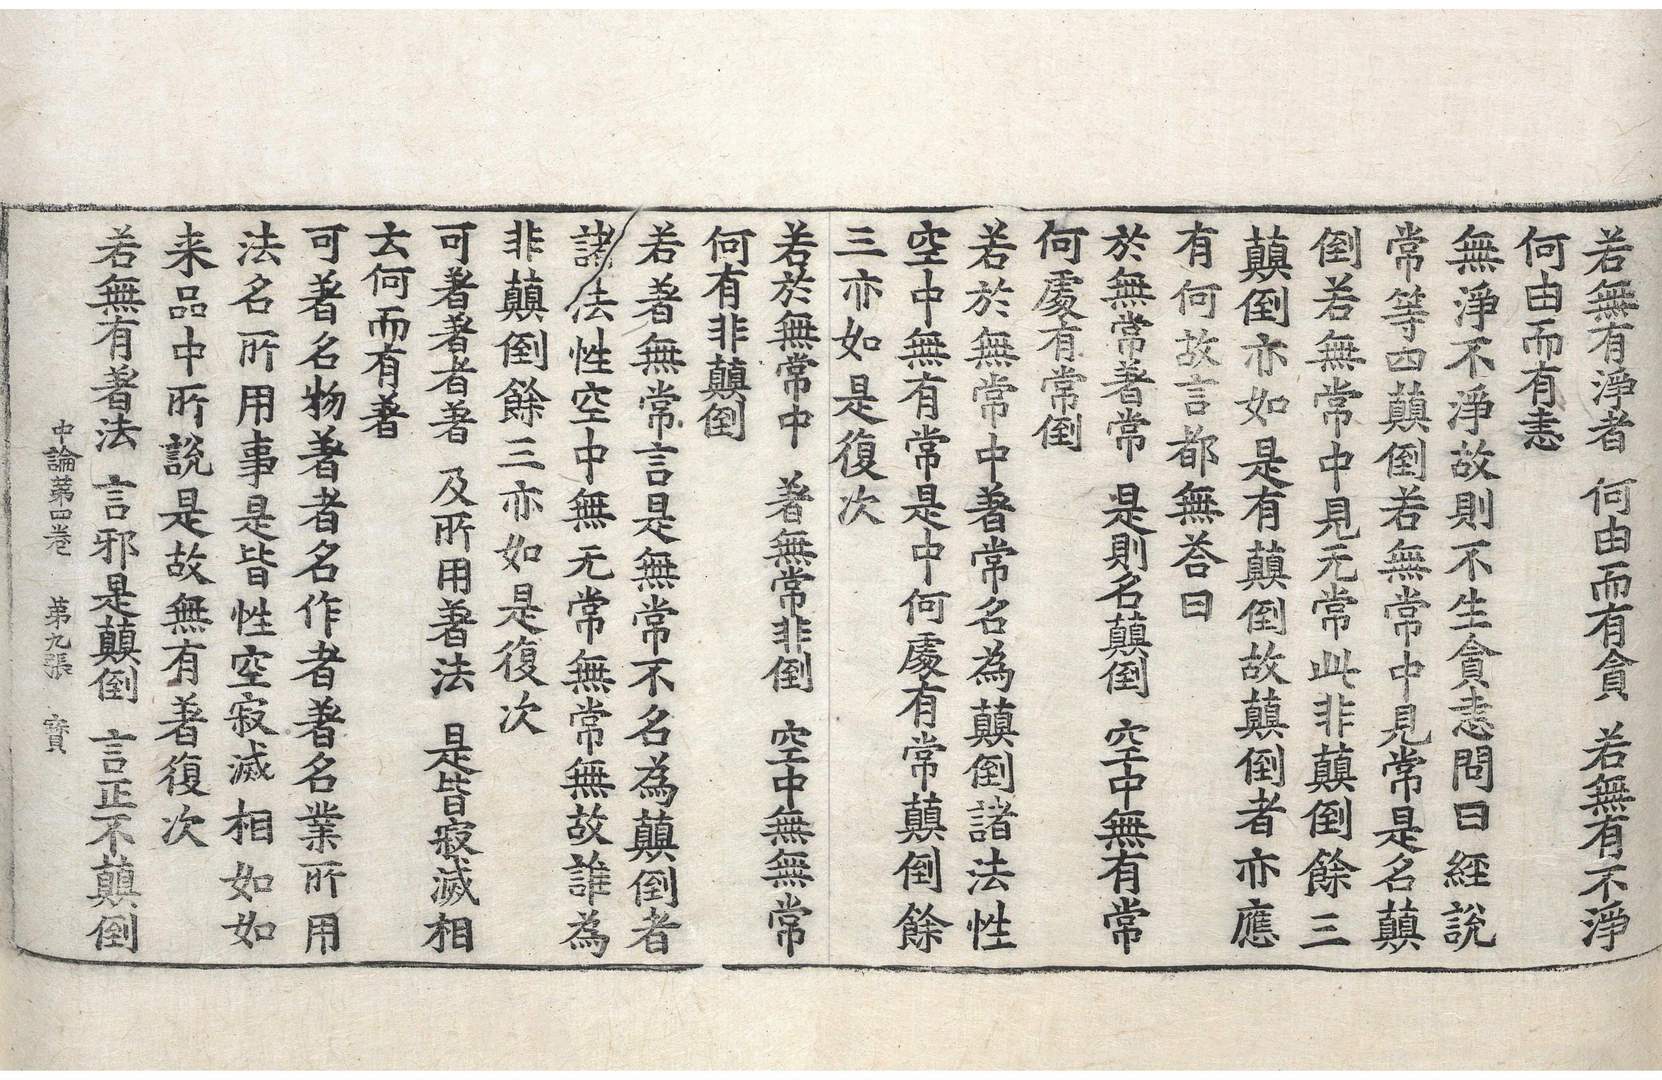 若無有淨者 何由而有貪 若無有不淨
何由而有恚
無淨不淨故則不生貪恚問曰經說
常等四顛倒若無常中見常是名顛
倒若無常中見无常此非顛倒餘三
顛倒亦如是有顛倒故顛倒者亦應
有何故言都無荅曰
於無常著常 是則名顛倒 空中無有常
何處有常倒
若於無常中著常名為顛倒諸法性
空中無有常是中何處有常顛倒餘
三亦如是復次
若於無常中 著無常非倒 空中無無常
何有非顛倒
若著無常言是無常不名為顛倒者
諸法性空中無无常無常無故誰為
非顛倒餘三亦如是復次
可著著者著 及所用著法 是皆寂滅相
云何而有著
可著名物著者名作者著名業所用
法名所用事是皆性空寂滅相如如
来品中所說是故無有著復次
若無有著法 言邪是顛倒 言正不顛倒
中論第四卷 第九張 寶